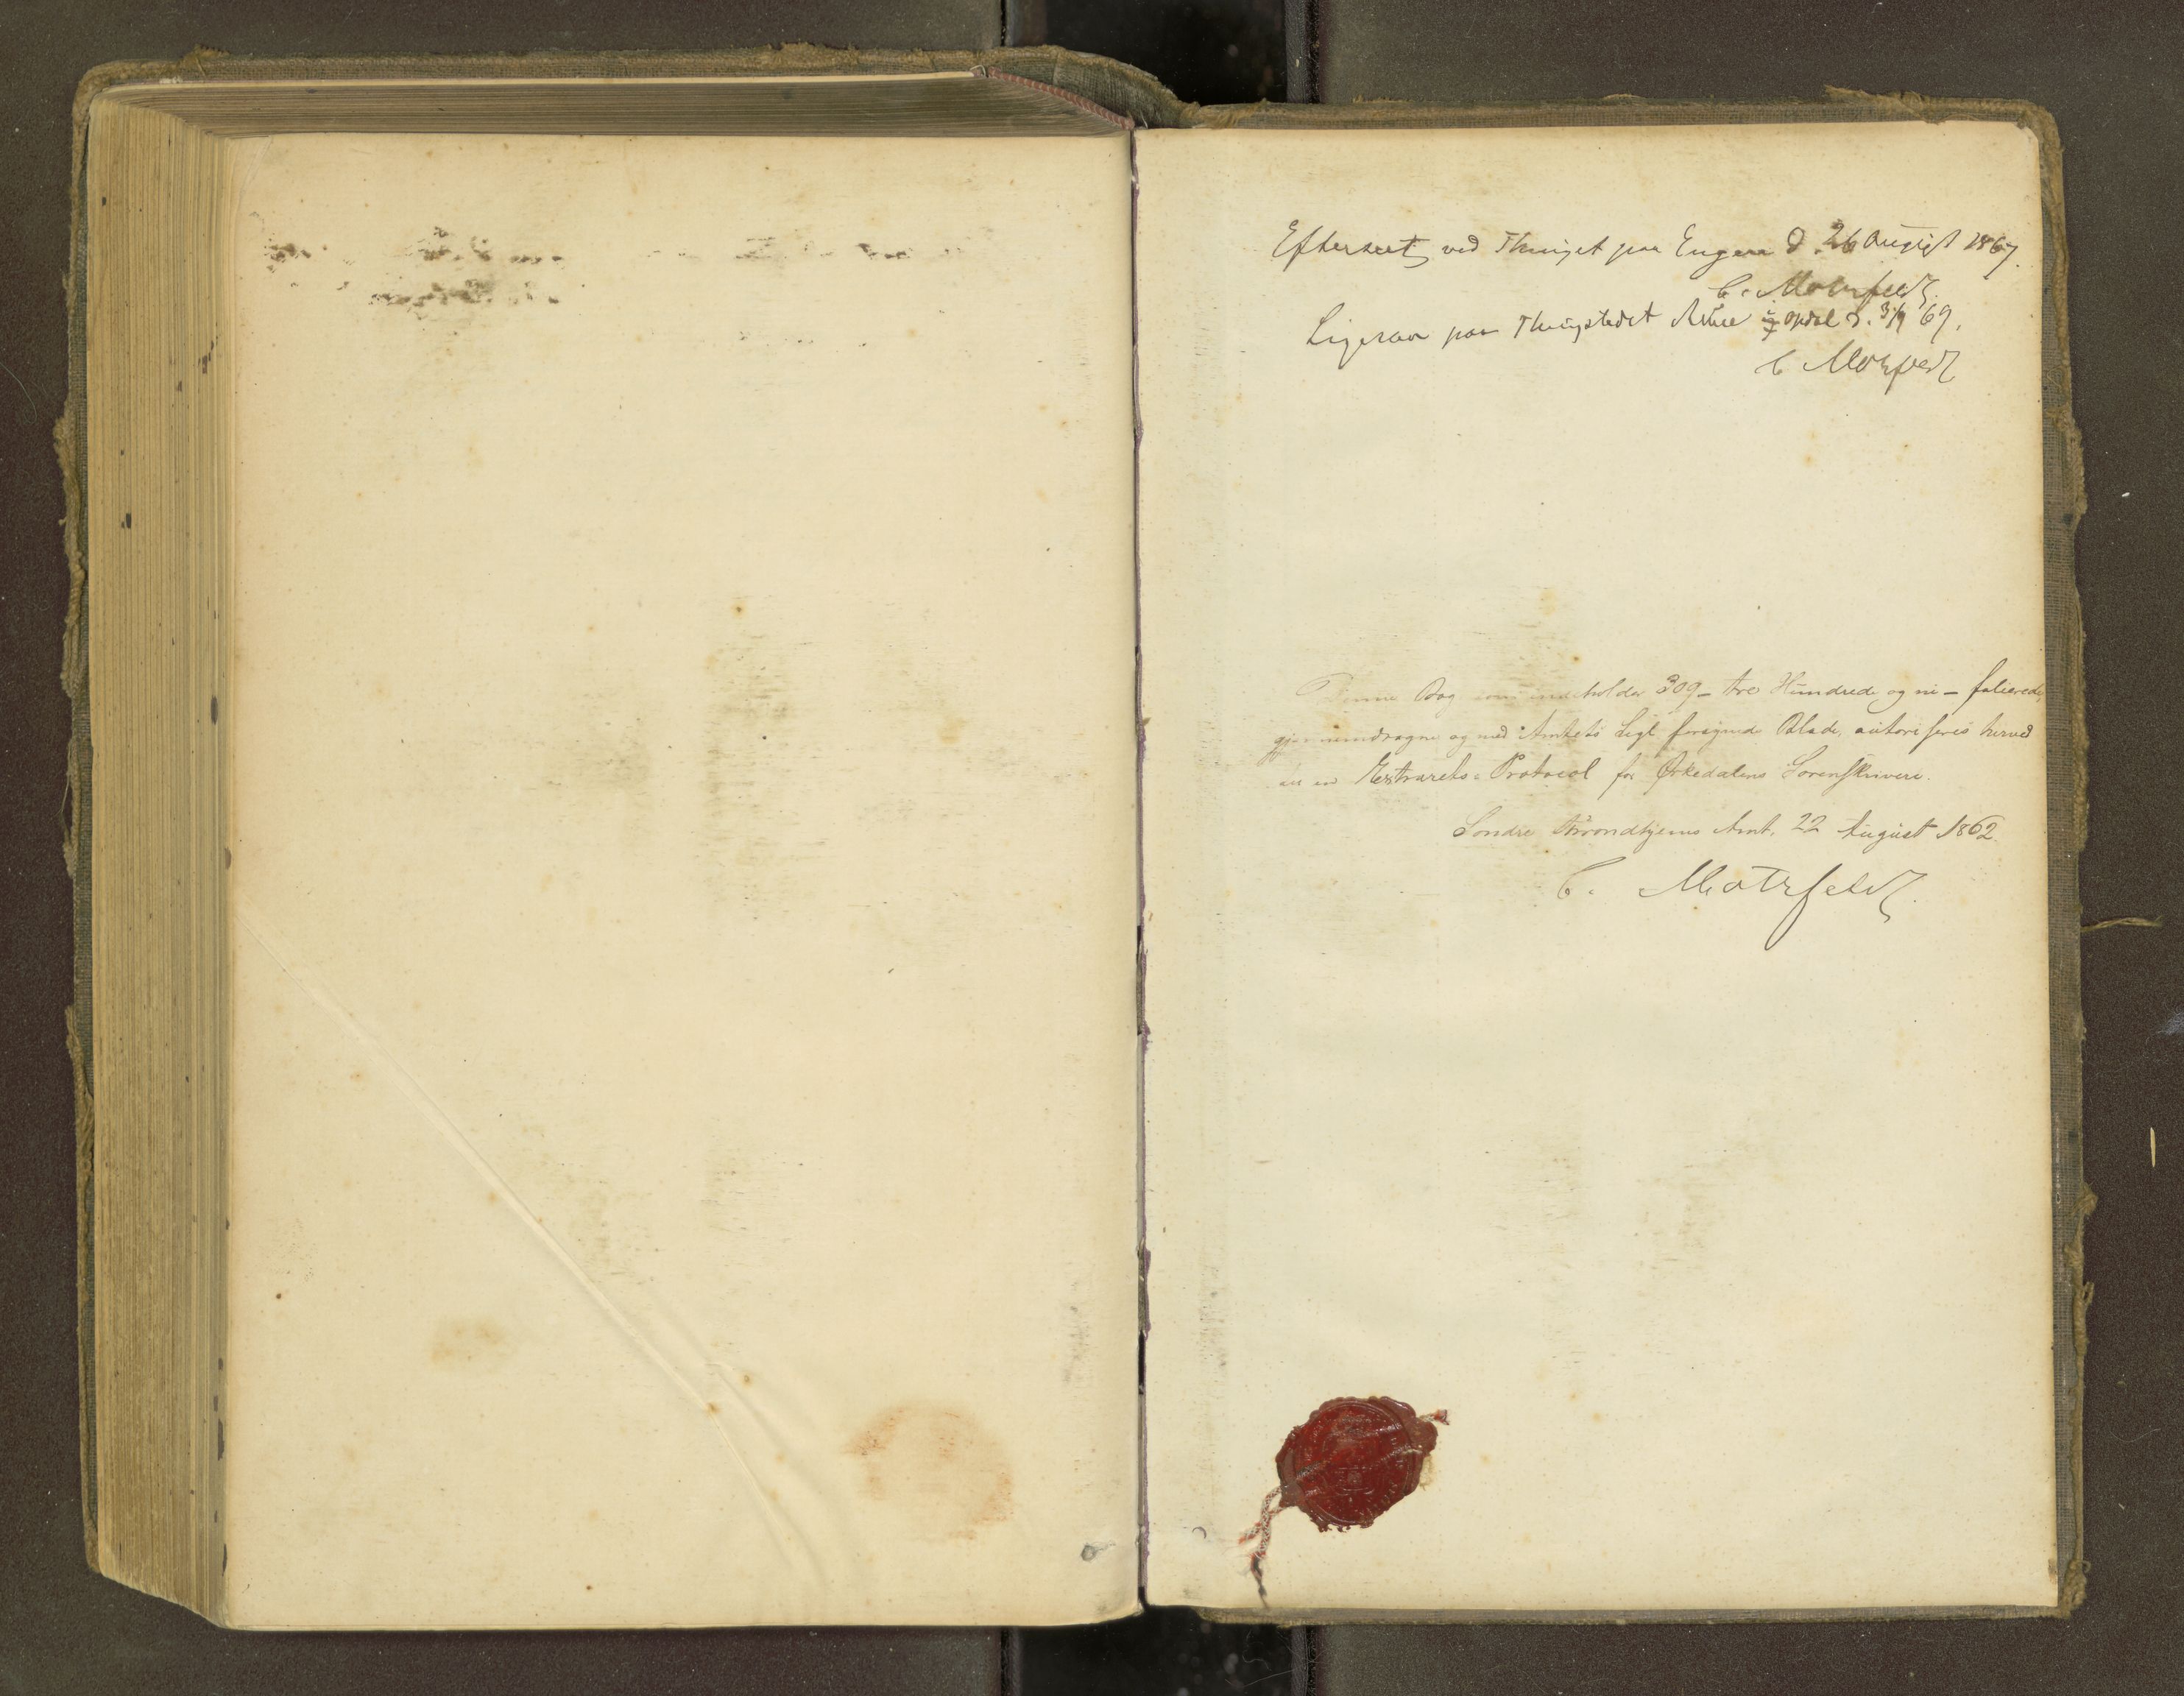 Efterseet ved Thinget paa Engen d. 26 August 1867.
C. Motzfeldt
Ligesaa paa Thingstedet i Opdal d. 3/9 69.
C Motzfeldt
Denne Bog som indeholder 309 - tre Hundrede og ni - folierede,
gjennemdragne og med Amtets Segl forsynede Blade, autoriseres herved
som en Extrarets-Protocol for Ørkedalens Sorenskriveri.
Søndre Throndhjems Amt, 22 August 1862.
C. Motzfeldt.